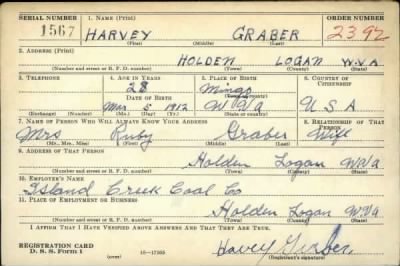 SERIAL NUMBER 1. NAME (Print) ORDER NUMBER
1567 HARVEY GRABER 2392
(First) (Middle) (Last)
2. ADDRESS (Print)
HOLDEN LOGAN W.VA
(Number and street or R. F. D. number) (Town) (County) (State)
3. TELEPHONE 4. AGE IN YEARS 5. PLACE OF BIRTH 6. COUNTRY OF CITIZENSHIP
28 Mingo
DATE OF BIRTH (Town or county)
Mar 5 1912 W Va U S A
(Exchange) (Number) (Mo.) (Day) (Yr.) (State or country)
7. NAME OF PERSON WHO WILL ALWAYS KNOW YOUR ADDRESS 8. RELATIONSHIP OF THAT PERSON
Mrs Ruby Graber Wife
(Mr., Mrs., Miss) (First) (Middle) (Last)
9. ADDRESS OF THAT PERSON
Holden Logan W.Va
(Number and street or R. F. D. number) (Town) (County) (State)
10. EMPLOYER'S NAME
Island Creek Coal Co
11. PLACE OF EMPLOYMENT OR BUSINESS
Holden Logan W.Va
(Number and street or R. F. D. number) (Town) (County) (State)
I AFFIRM THAT I HAVE VERIFIED ABOVE ANSWERS AND THAT THEY ARE TRUE.
REGISTRATION CARD
D. S. S. Form 1 (over) 16—17105 Harvey Graber
(Registrant's signature)